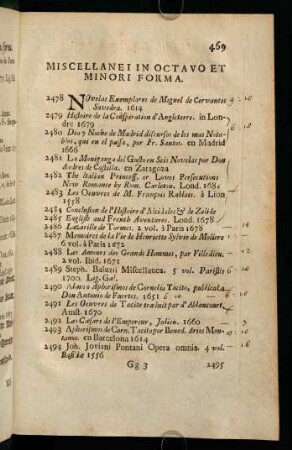 469
MISCELLANEI IN OCTAVO ET
MINORI FORMA.
2478 Novelas Exemplares de Miguel de Cervantes
Saavedra. 1614
2479 Histoire de la Conspiration d'Angleterre. in Lon-
dre 1679
2480 Dia y Noche de Madrid discursos de los mas Nota-
bles, que en el passa, por Fr. Santos. en Madrid
1666
2481 La Mongionga del Gusto en Seis Novelas por Don
Andres de Castilla. en Zaragoza
2482 The Italian Princess, or Loves Persecutions
New Romance by Rom. Carleton. Lond. 168
2483 Les Oeuvres de M. François Rablais. à Lion
1558
2484 Conclusion de l'Histoire d'Alcidalis & de Zelide
2485 English and French Avanturer. Lond. 1678
2486 Lazarille de Tormes. 2 vol. à Paris 1678
2487 Memoires de la Vie de Henriette Sylvie de Moliere
6 vol. à Paris 1672
2488 Les Amours des Grands Hommes, par Villedieu.
2 vol. Ibid. 1671
2489 Steph. Baluzii Miscellanea. 5 vol. Parisiis
1700. Lig. Gal.
2490 Alamos Aphorismos de Cornelio Tacito, publicala
Don Antonio de Fuertes. 1651
2491 Les Oeuvres de Tacite traduit par d'Ablancourt.
Amst. 1670
2492 Les Cæsars de l'Empereur, Julien. 1660
2493 Aphorismos de Corn. Tacito por Bened. Arias Mon-
tano. en Barcelona 1614
2494 Joh. Joviani Pontani Opera omnia. 4 vol.
Basileæ 1556
Gg 3 2495